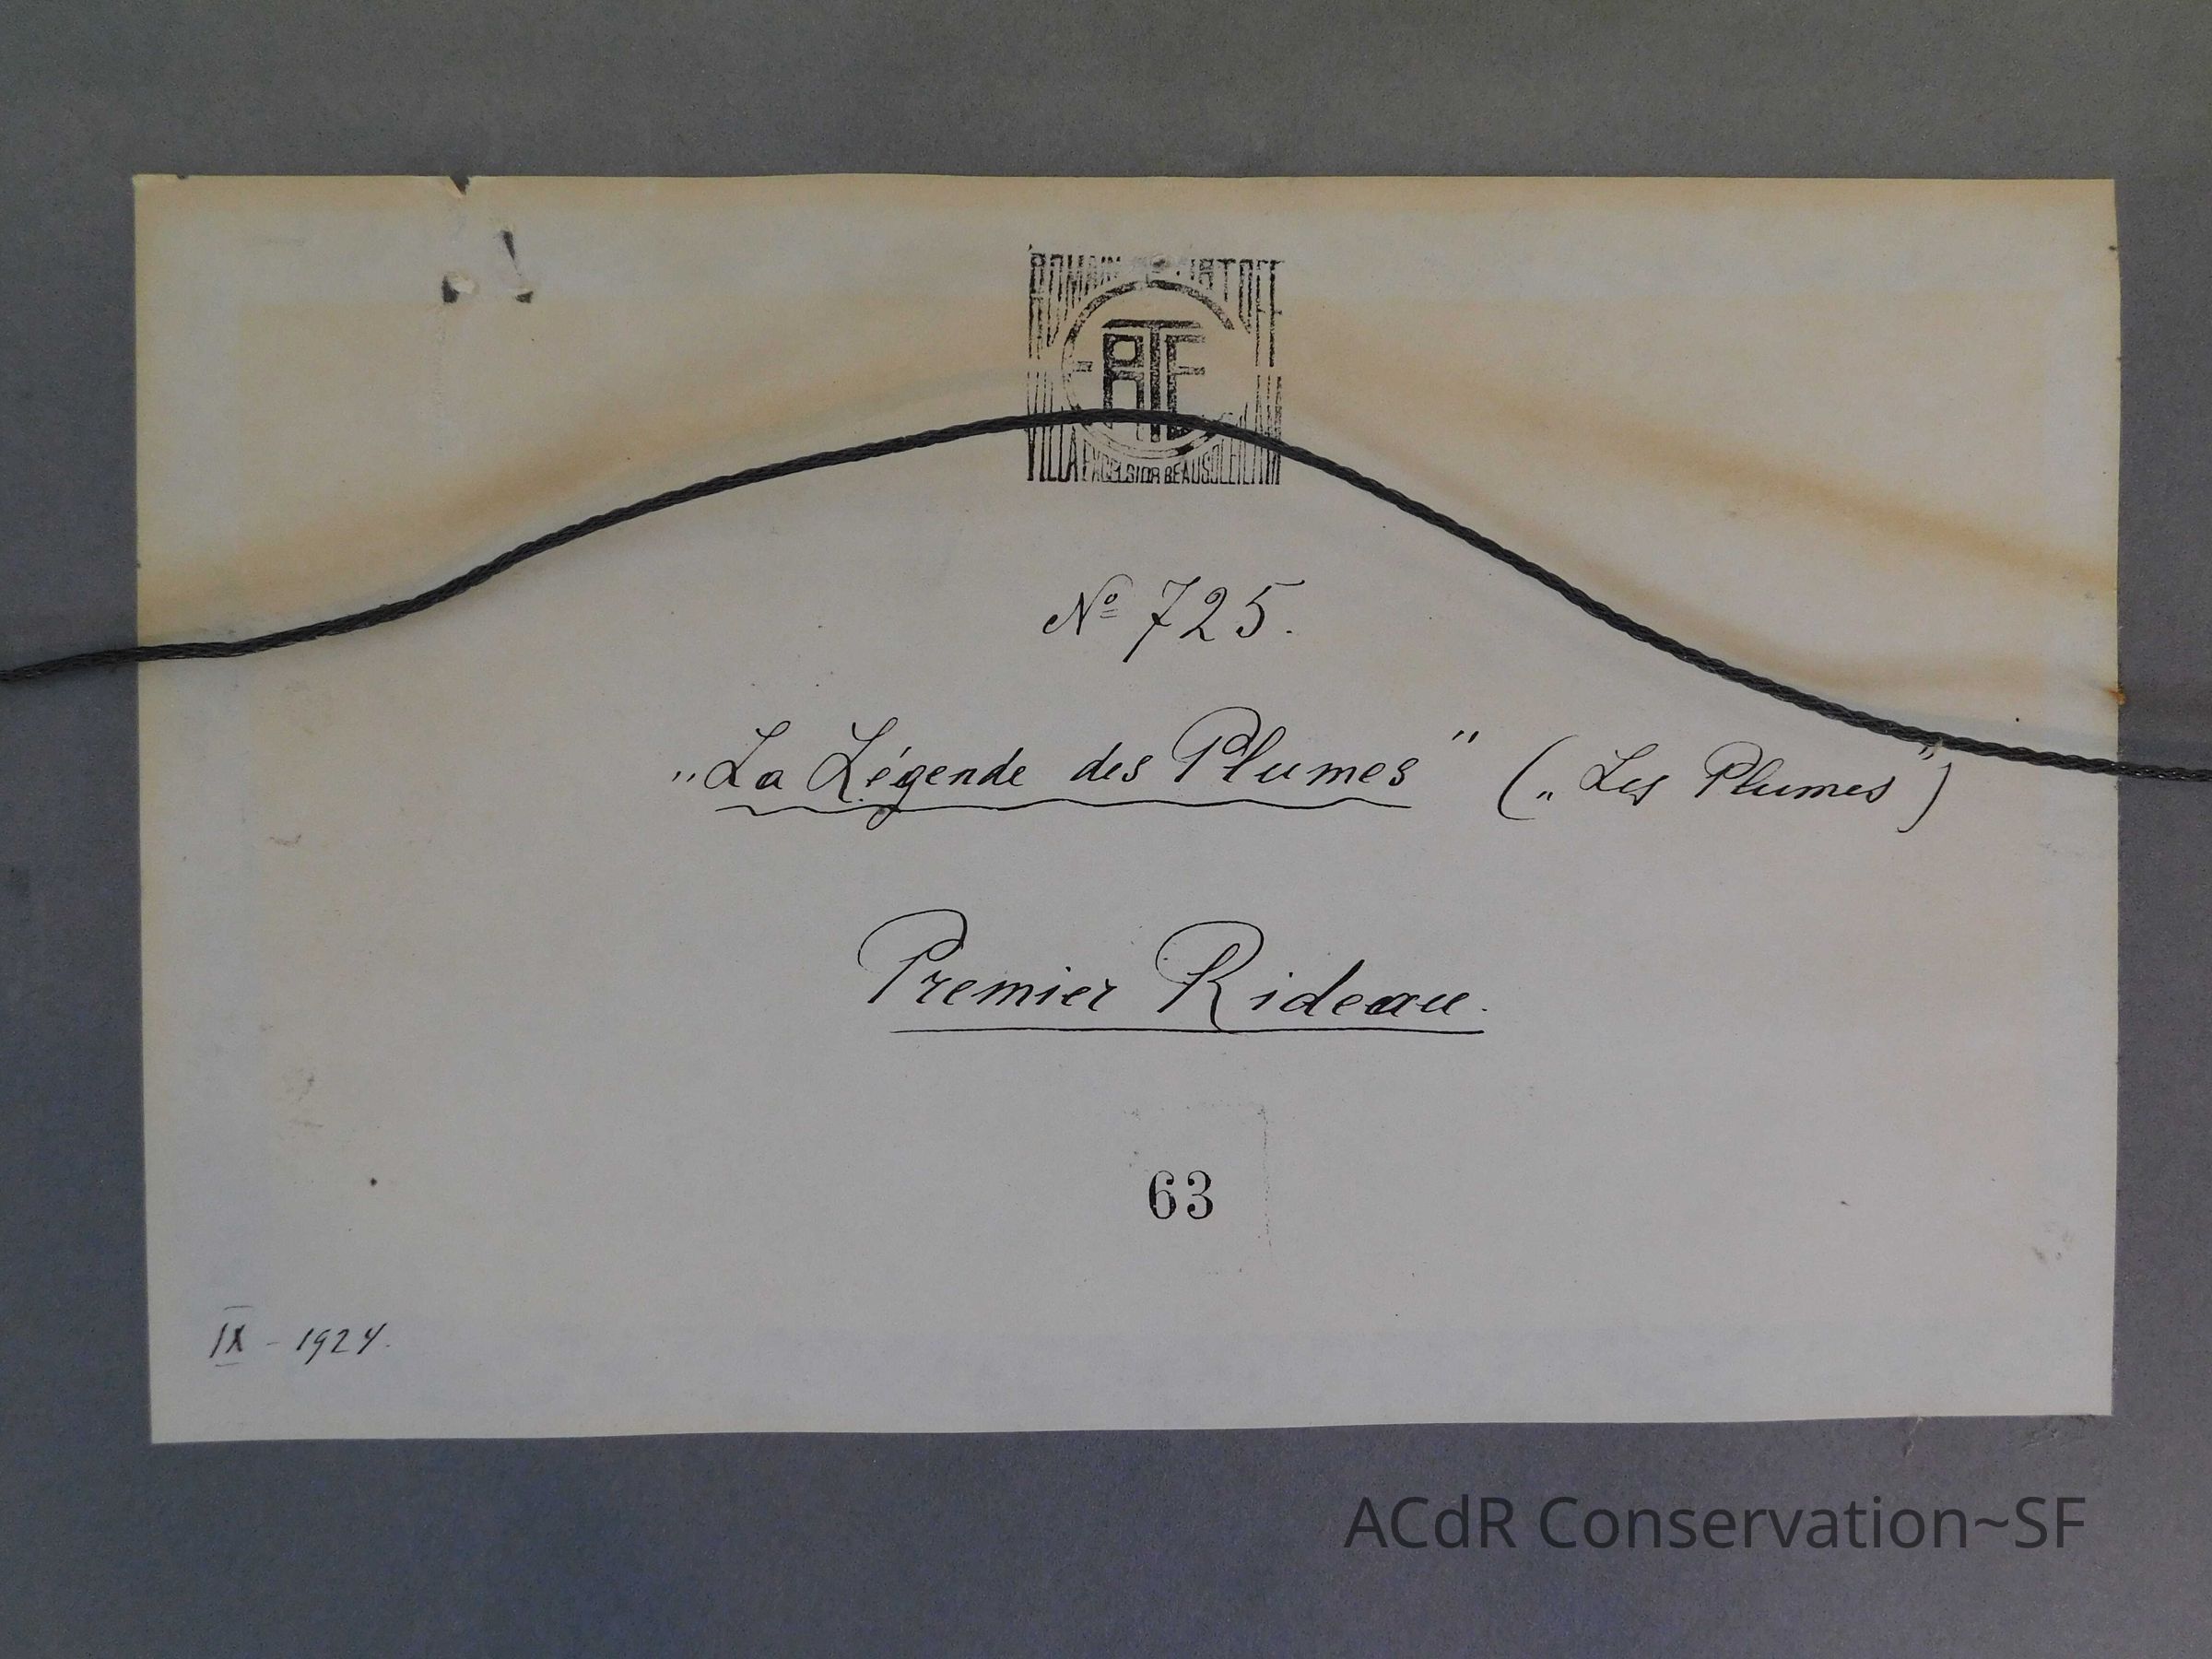 ROMAIN
VILLA EXCELSIOR BEAUSOLEIL A.M
RTF
Nº 725.
„La Légende des Plumes" („Les Plumes")
Premier Rideau.
63
IX - 1924.
ACdR Conservation~SF